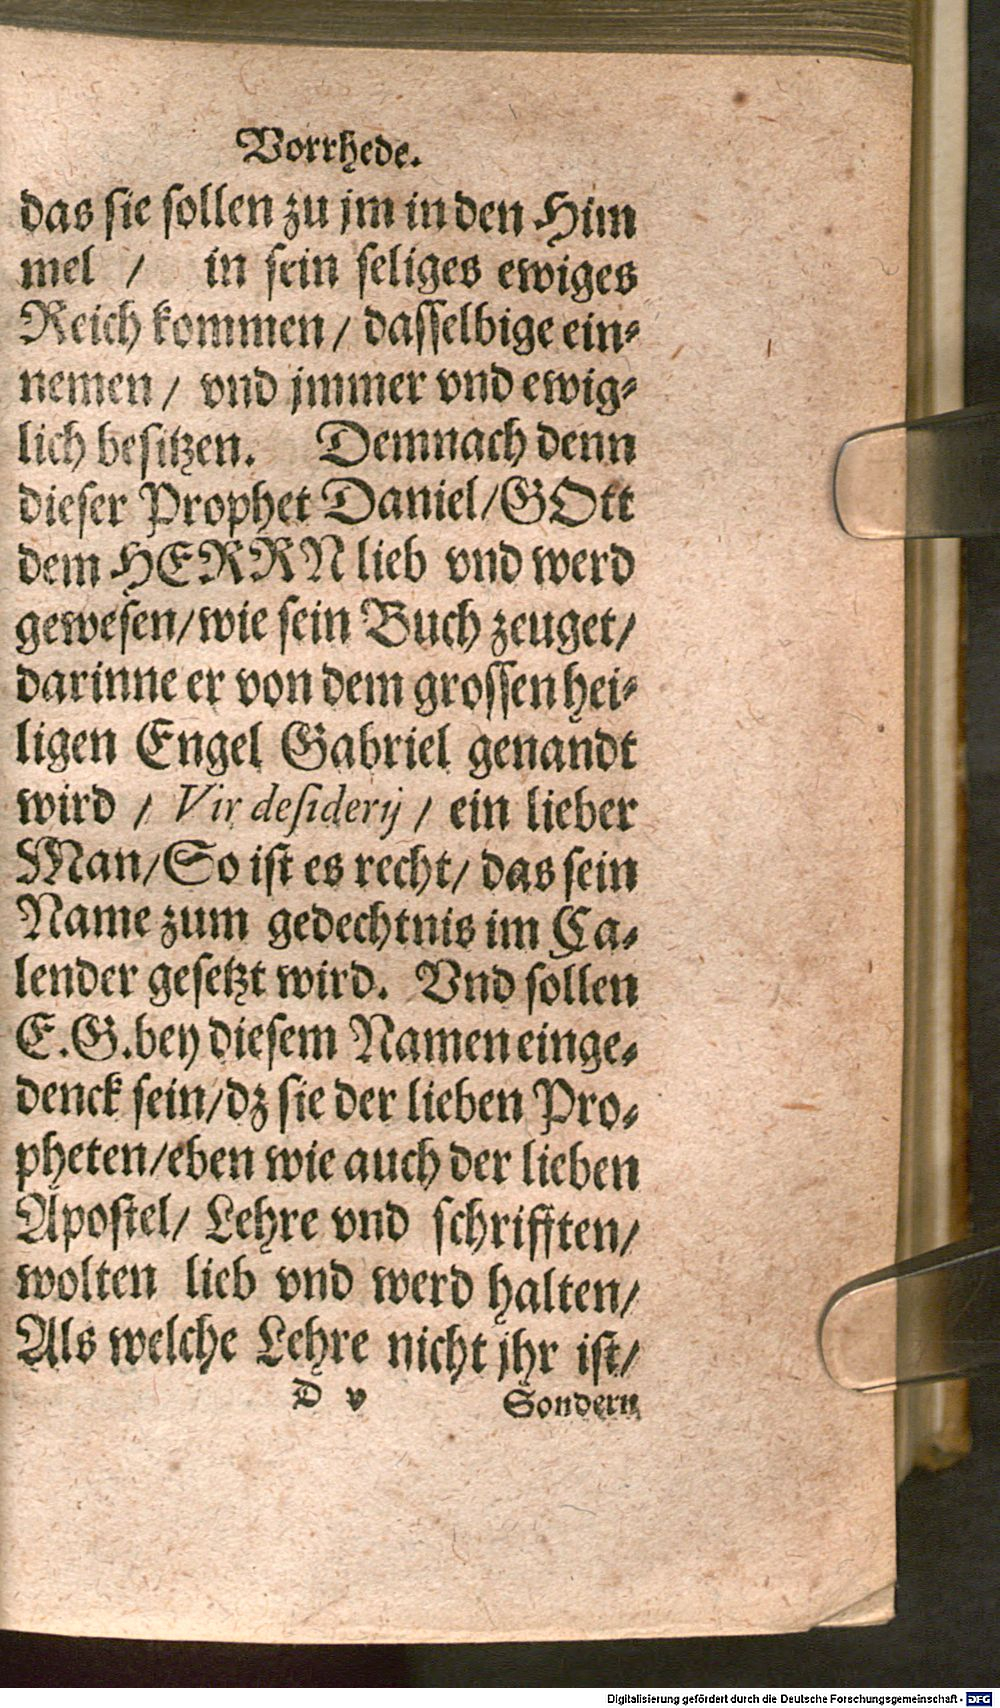 Vorrhede.
das sie sollen zu jm in den Him
mel / in sein seliges ewiges
Reich kommen / dasselbige ein-
nemen / vnd jmmer vnd ewig-
lich besitzen. Demnach denn
dieser Prophet Daniel / GOtt
dem HERRN lieb vnd werd
gewesen / wie sein Buch zeuget /
darinne er von dem grossen hei-
ligen Engel Gabriel genandt
wird / Vir desiderij / ein lieber
Man / So ist es recht / das sein
Name zum gedechtnis im Ca-
lender gesetzt wird. Vnd sollen
E. G. bey diesem Namen einge-
denck sein / dz sie der lieben Pro-
pheten / eben wie auch der lieben
Apostel / Lehre vnd schrifften /
wolten lieb vnd werd halten /
Als welche Lehre nicht jhr ist /
D v Sondern
Digitalisierung gefördert durch die Deutsche Forschungsgemeinschaft - DFG